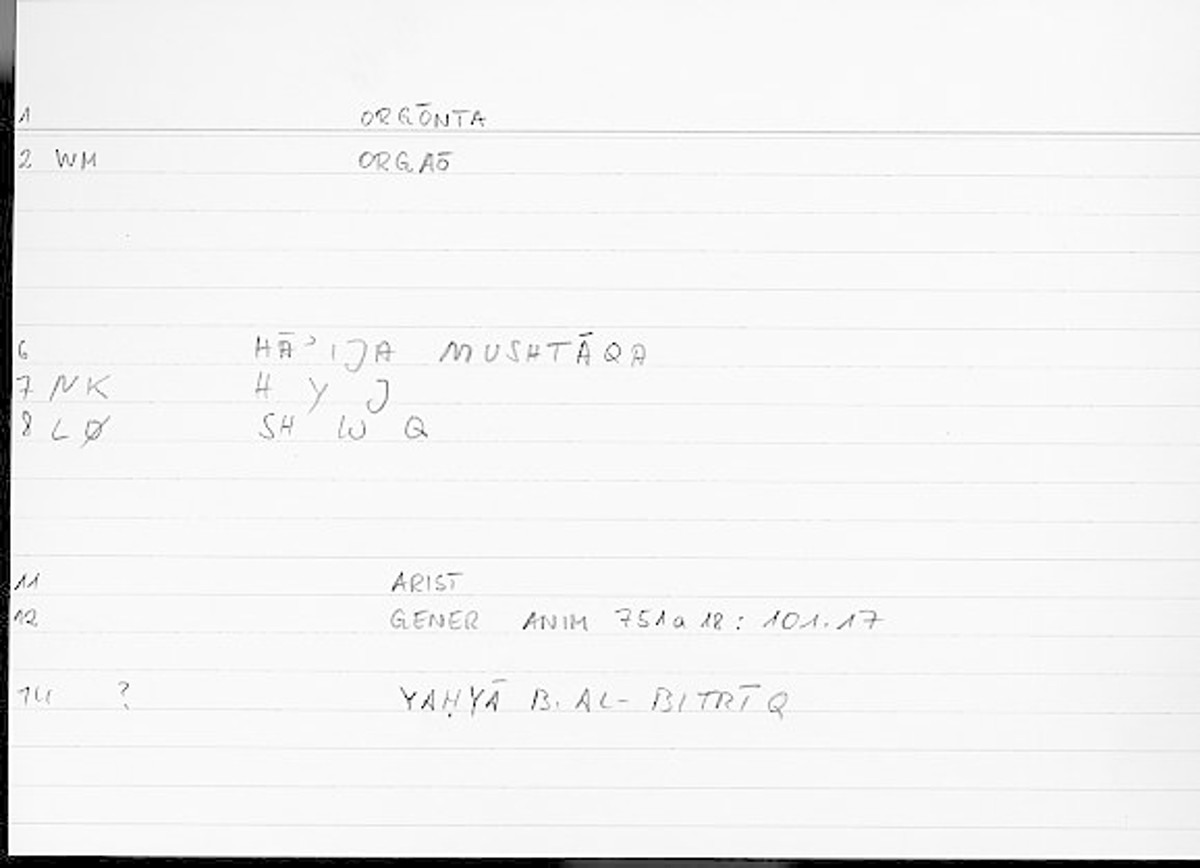 1 ORGŌNTA
2 WM ORGAŌ
6 HĀʾIJA MUSHTĀQA
7 NK H Y J
8 LØ SH W Q
11 ARIST
12 GENER ANIM 751a18: 101.17
14 ? YAḤYĀ B. AL-BITRĪQ